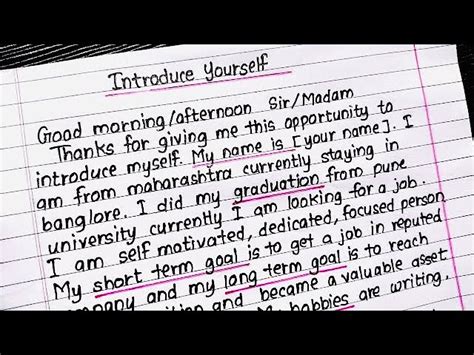 Introduce Yourself
Good morning/afternoon Sir/Madam
Thanks for giving me this opportunity to
introduce myself. My name is [your name]. I
am from maharashtra currently staying in
banglore. I did my graduation from pune
university currently I am looking for a job.
I am self motivated, dedicated, focused person
My short term goal is to get a job in reputed
and my long term goal is to reach
and became a valuable asset
hobbies are writing,